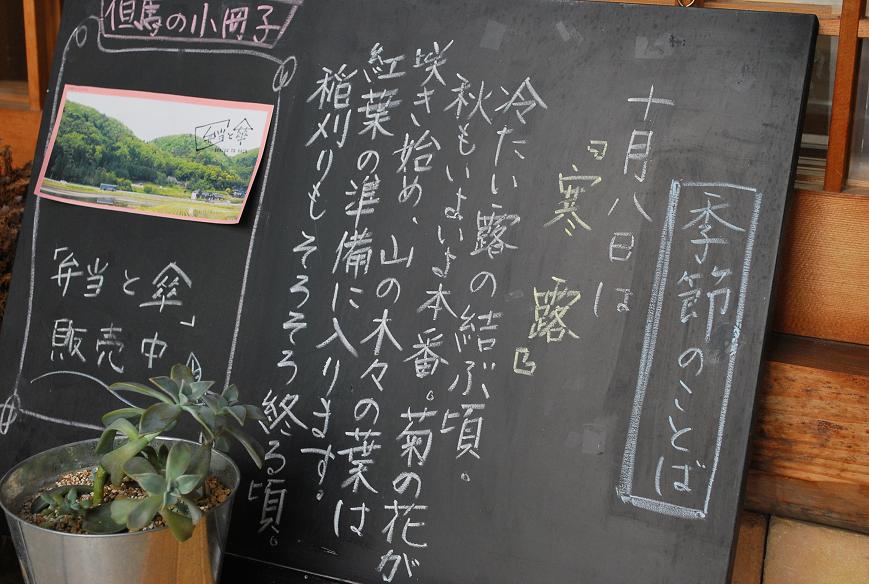 季節のことば
十月八日は
『寒露』
冷たい露の結ぶ頃。
秋もいよいよ本番。菊の花が
咲き始め、山の木々の葉は
紅葉の準備に入ります。
稲刈りもそろそろ終る頃。
但馬の小冊子
弁当と傘
「弁当と傘」
販売中